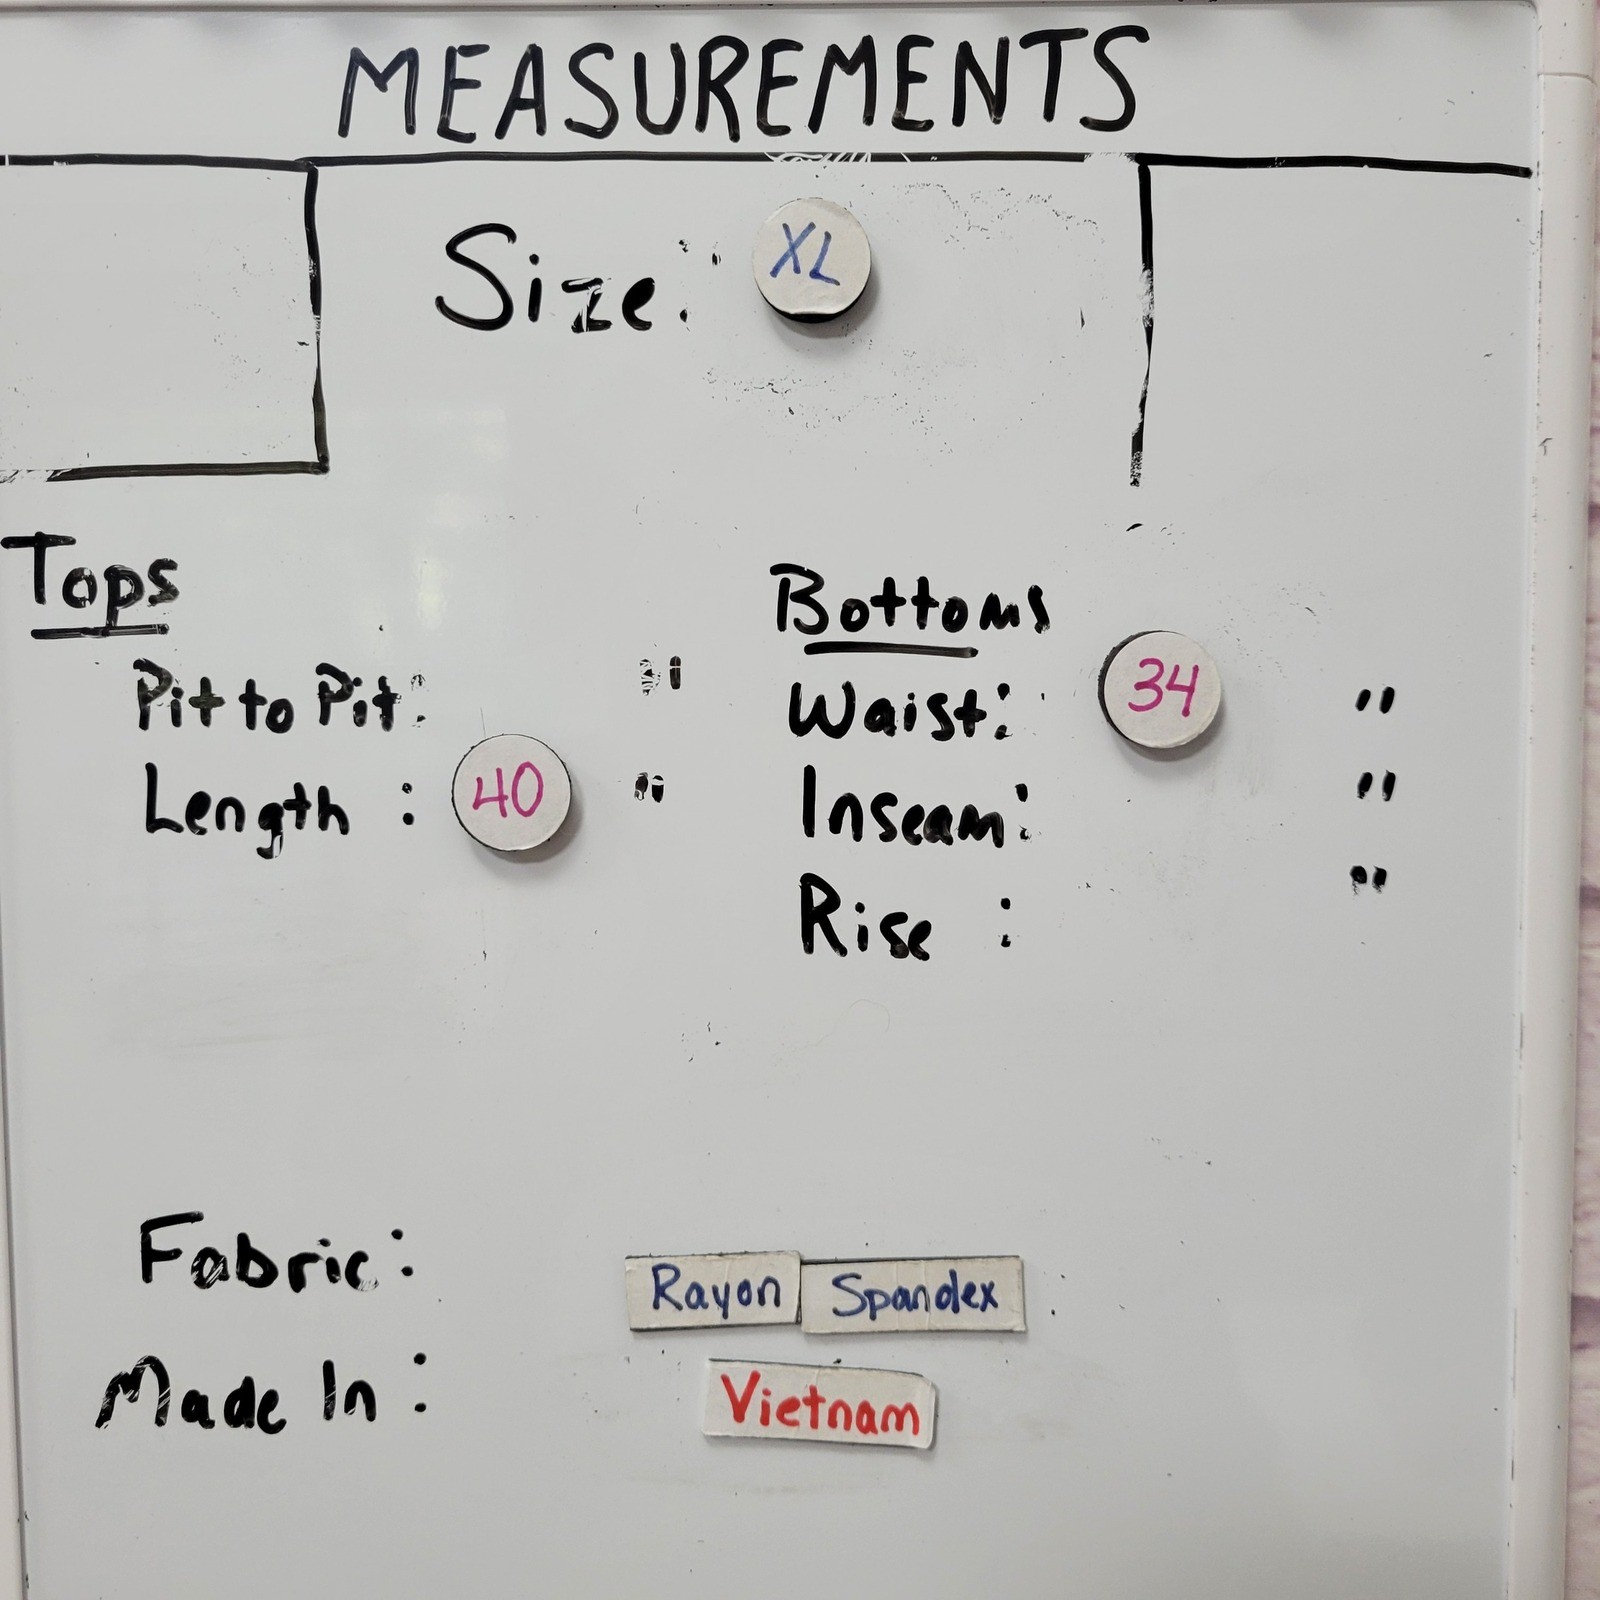 MEASUREMENTS
Size: XL
Tops
Pit to Pit: "
Length : 40 "
Bottoms
Waist: 34 "
Inseam: "
Rise : "
Fabric: Rayon Spandex
Made In: Vietnam